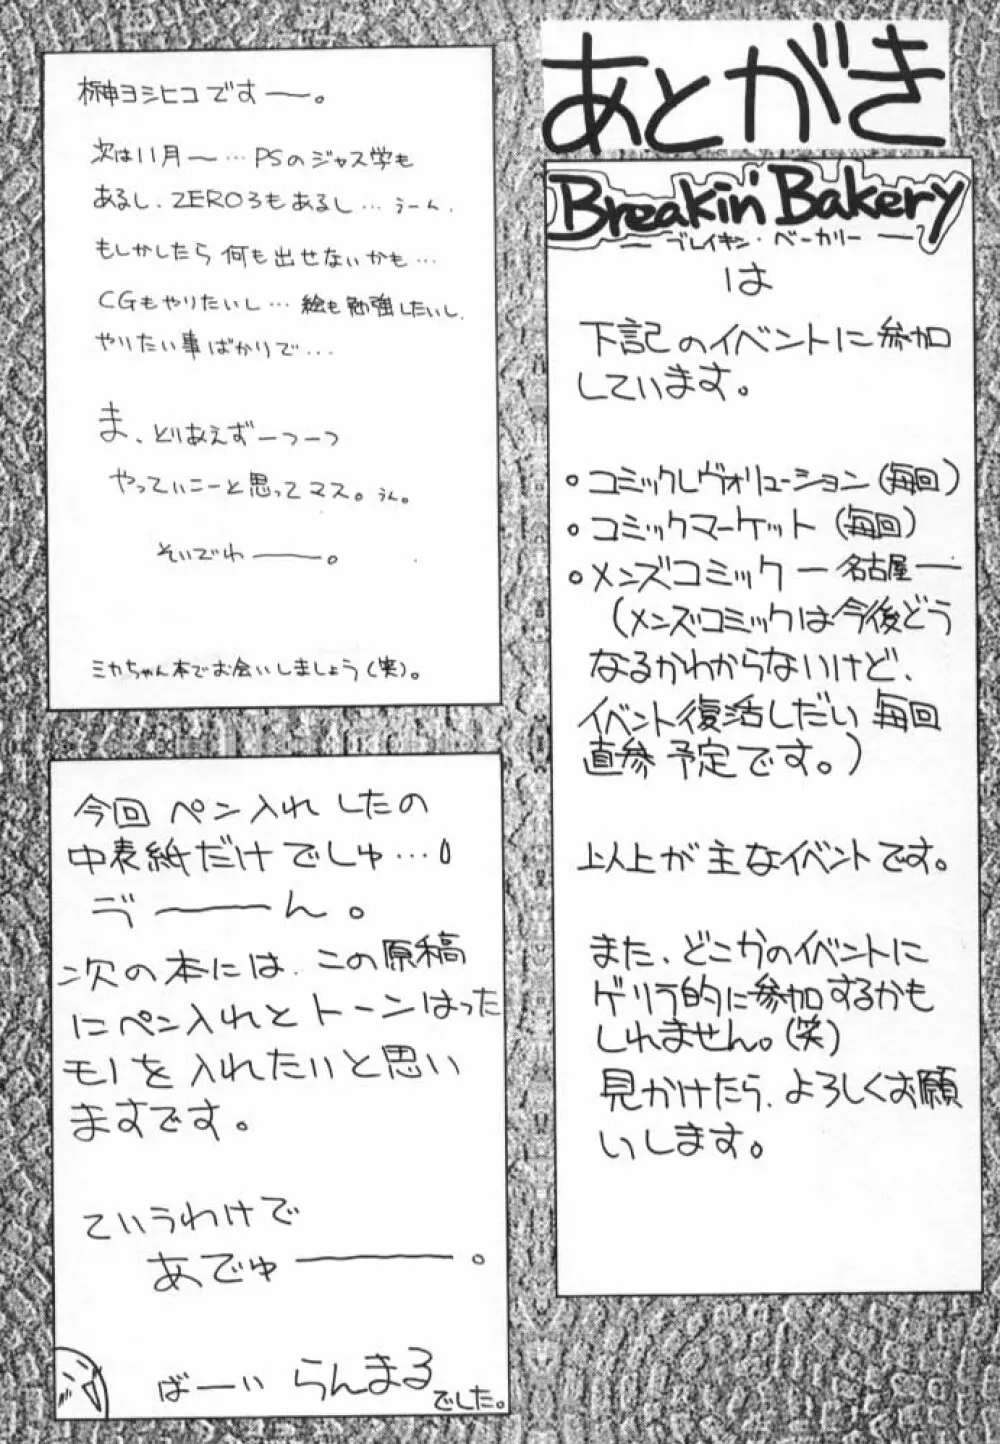 あとがき
Breakin' Bakery
ー ブレイキン・ベーカリー ー
は
下記のイベントに参加
しています。
・コミックレヴォリューション(毎回)
・コミックマーケット(毎回)
・メンズコミック ー名古屋ー
(メンズコミックは今後どう
なるかわからないけど、
イベント復活しだい毎回
直参予定です。)
以上が主なイベントです。
また、どこかのイベントに
ゲリラ的に参加するかも
しれません。(笑)
見かけたら、よろしくお願
いします。
榊ヨシヒコですー。
次は11月〜…PSのジャス学も
あるし、ZERO3もあるし…うーん、
もしかしたら何も出せないかも…
CGもやりたいし…絵も勉強したいし、
やりたい事ばかりで…
ま、とりあえずーつーつ
やっていこーと思ってマス。うん。
そいでわー。
ミカちゃん本でお会いしましょう(笑)。
今回ペン入れしたの
中表紙だけでしゅ…
ヴーん。
次の本には、この原稿
にペン入れとトーンはった
モノを入れたいと思い
ますです。
ていうわけで
あでゅー。
ばーい らんまる
でした。